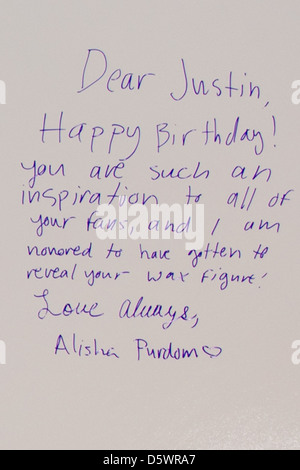 Dear Justin,
Happy Birthday!
You are such an
inspiration to all of
your fans, and I am
honored to have gotten to
reveal your wax figure!
Love always,
Alisha Purdom♡
alamy
a
a
Image ID: D5WRA7
www.alamy.com